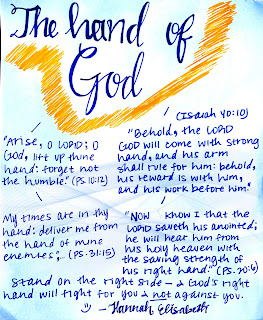 The hand of
God
(Isaiah 40:10)
"Arise, O LORD; O
God, lift up thine
hand: forget not
the humble." (PS. 10:12)
"Behold, the LORD
GOD will come with strong
hand, and his arm
shall rule for him: behold,
his reward is with him,
and his work before him."
My times are in thy
hand: deliver me from
the hand of mine
enemies;.. (PS. 31:15)
"NOW know I that the
LORD saveth his anointed;
he will hear him from
his holy heaven with
the saving strength of
his right hand." (PS. 20:6)
Stand on the right side – & God's right
hand will fight for you & not against you.
– Hannah Elisabeth